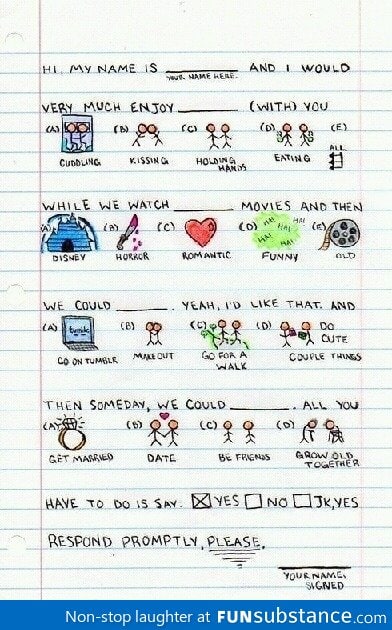 HI. MY NAME IS ________ AND I WOULD
YOUR NAME HERE.
VERY MUCH ENJOY ________ (WITH) YOU
(A) (B) (C) (D) (E)
ALL
CUDDLING KISSING HOLDING HANDS EATING
WHILE WE WATCH ________ MOVIES AND THEN
(A) (B) (C) (D) (E)
HA! HA! HA! HA!
DISNEY HORROR ROMANTIC FUNNY OLD
WE COULD ________. YEAH, I'D LIKE THAT. AND
(A) (B) (C) (D) DO CUTE
tumblr.
GO ON TUMBLR MAKE OUT GO FOR A WALK COUPLE THINGS
THEN SOMEDAY, WE COULD ________. ALL YOU
(A) (B) (C) (D)
GET MARRIED DATE BE FRIENDS GROW OLD TOGETHER
HAVE TO DO IS SAY. ☒ YES ☐ NO ☐ JK, YES
RESPOND PROMPTLY, PLEASE.
YOUR NAME, SIGNED
Non-stop laughter at FUNsubstance.com